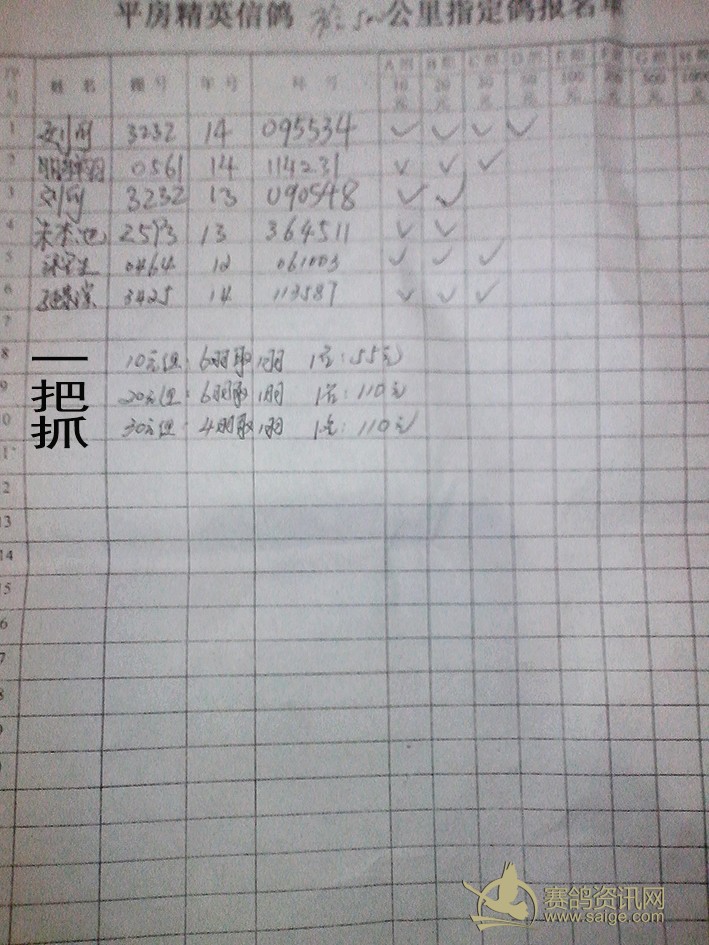 平房精英信鸽 公里指定鸽报名单
序号 姓名 棚号 年号 环号 A组10元 B组20元 C组30元 D组50元 E组100元 F组 G组500元 H组1000元
1 3232 14 095534 ✓ ✓ ✓ ✓
2 0561 14 114231 ✓ ✓ ✓
3 3232 13 090548 ✓ ✓
4 2593 13 364511 ✓ ✓
5 0464 12 061003 ✓ ✓ ✓
6 3425 14 113587 ✓ ✓ ✓
7
8 10元组:6羽取1羽 1名:55元
9 20元组:6羽取1羽 1名:110元
10 30元组:4羽取1羽 1名:110元
一把抓
11
12
13
14
15
赛鸽资讯网
www.saige.com